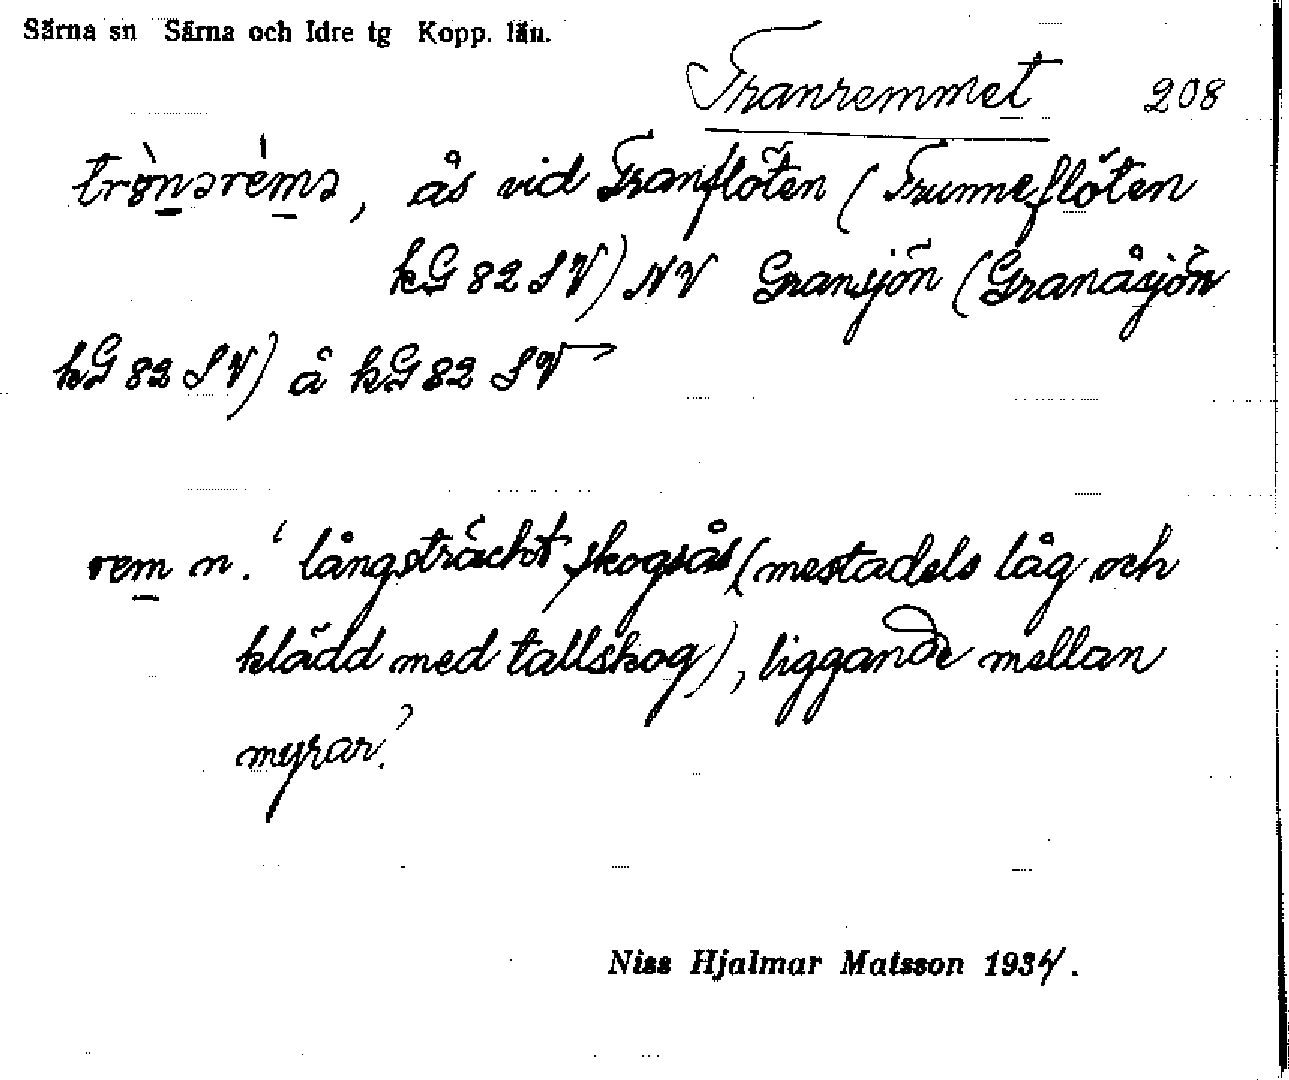 Särna sn Särna och Idre tg Kopp. län.
Tranremmet 208
trònərémə, ås vid Tranflöten (Trunneflöten
kG 82 SV) NV Gransjön (Granåsjön
kG 82 SV) å kG 82 SV
rem n. 'långsträckt skogsås (mestadels låg och
klädd med tallskog), liggande mellan
myrar.'
Niss Hjalmar Matsson 1934.